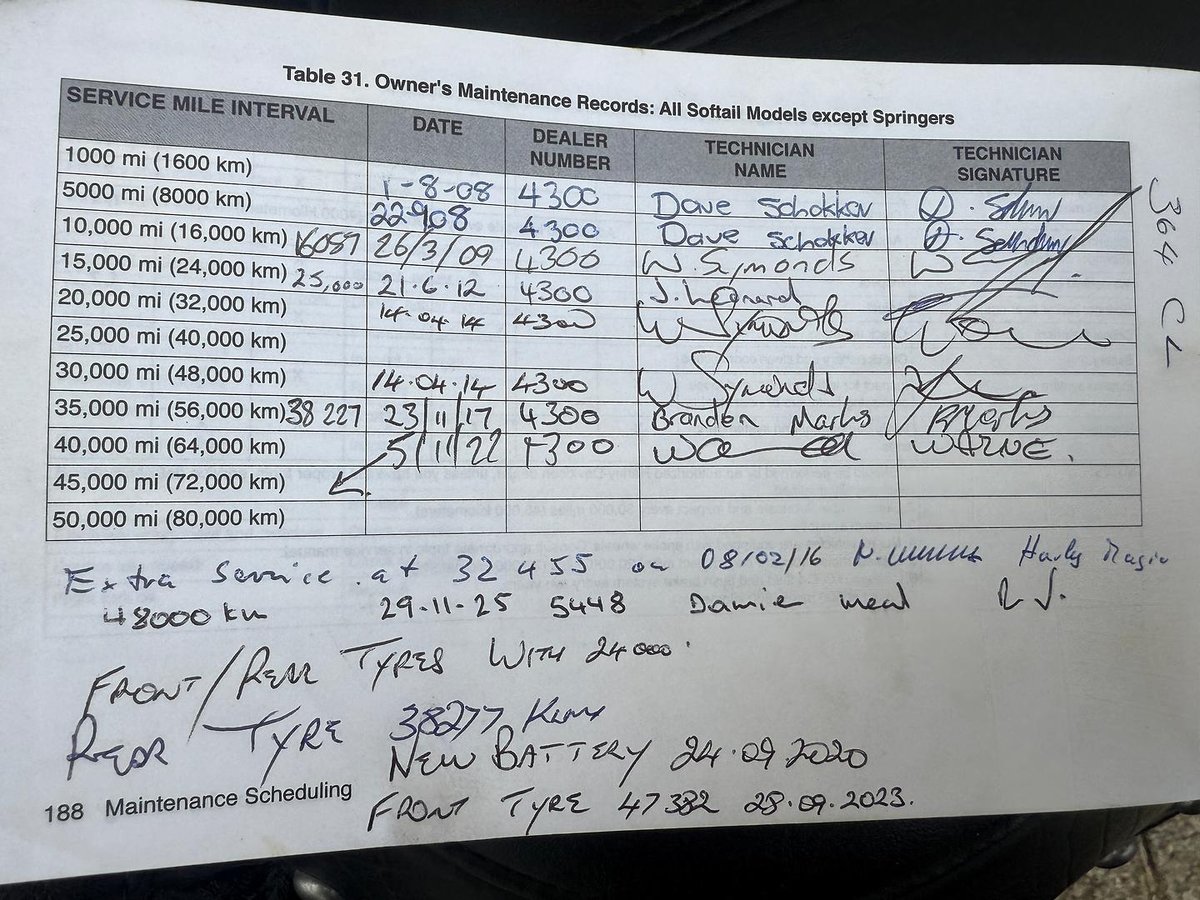 Table 31. Owner's Maintenance Records: All Softail Models except Springers
SERVICE MILE INTERVAL DATE DEALER NUMBER TECHNICIAN NAME TECHNICIAN SIGNATURE
1000 mi (1600 km) 1-8-08 4300 Dave Schokker
5000 mi (8000 km) 22-9-08 4300 Dave Schokker
10,000 mi (16,000 km) 16087 26/3/09 4300 W. Symonds
15,000 mi (24,000 km) 25,000 21.6.12 4300 J. Leonard
20,000 mi (32,000 km) 14.04.14 4300 W Symonds
25,000 mi (40,000 km)
30,000 mi (48,000 km) 14.04.14 4300 W Symonds
35,000 mi (56,000 km) 38227 23/11/17 4300 Branden Marks BMarks
40,000 mi (64,000 km) 5/11/22 4300 WARNE.
45,000 mi (72,000 km)
50,000 mi (80,000 km)
364 CL
Extra Service. at 32455 on 08/02/16 Harley
48000 km 29.11.25 5448
FRONT/REAR TYRES WITH 24000.
REAR TYRE 38277 Kms
NEW BATTERY 24.09.2020
FRONT TYRE 47382 28.09.2023.
188 Maintenance Scheduling